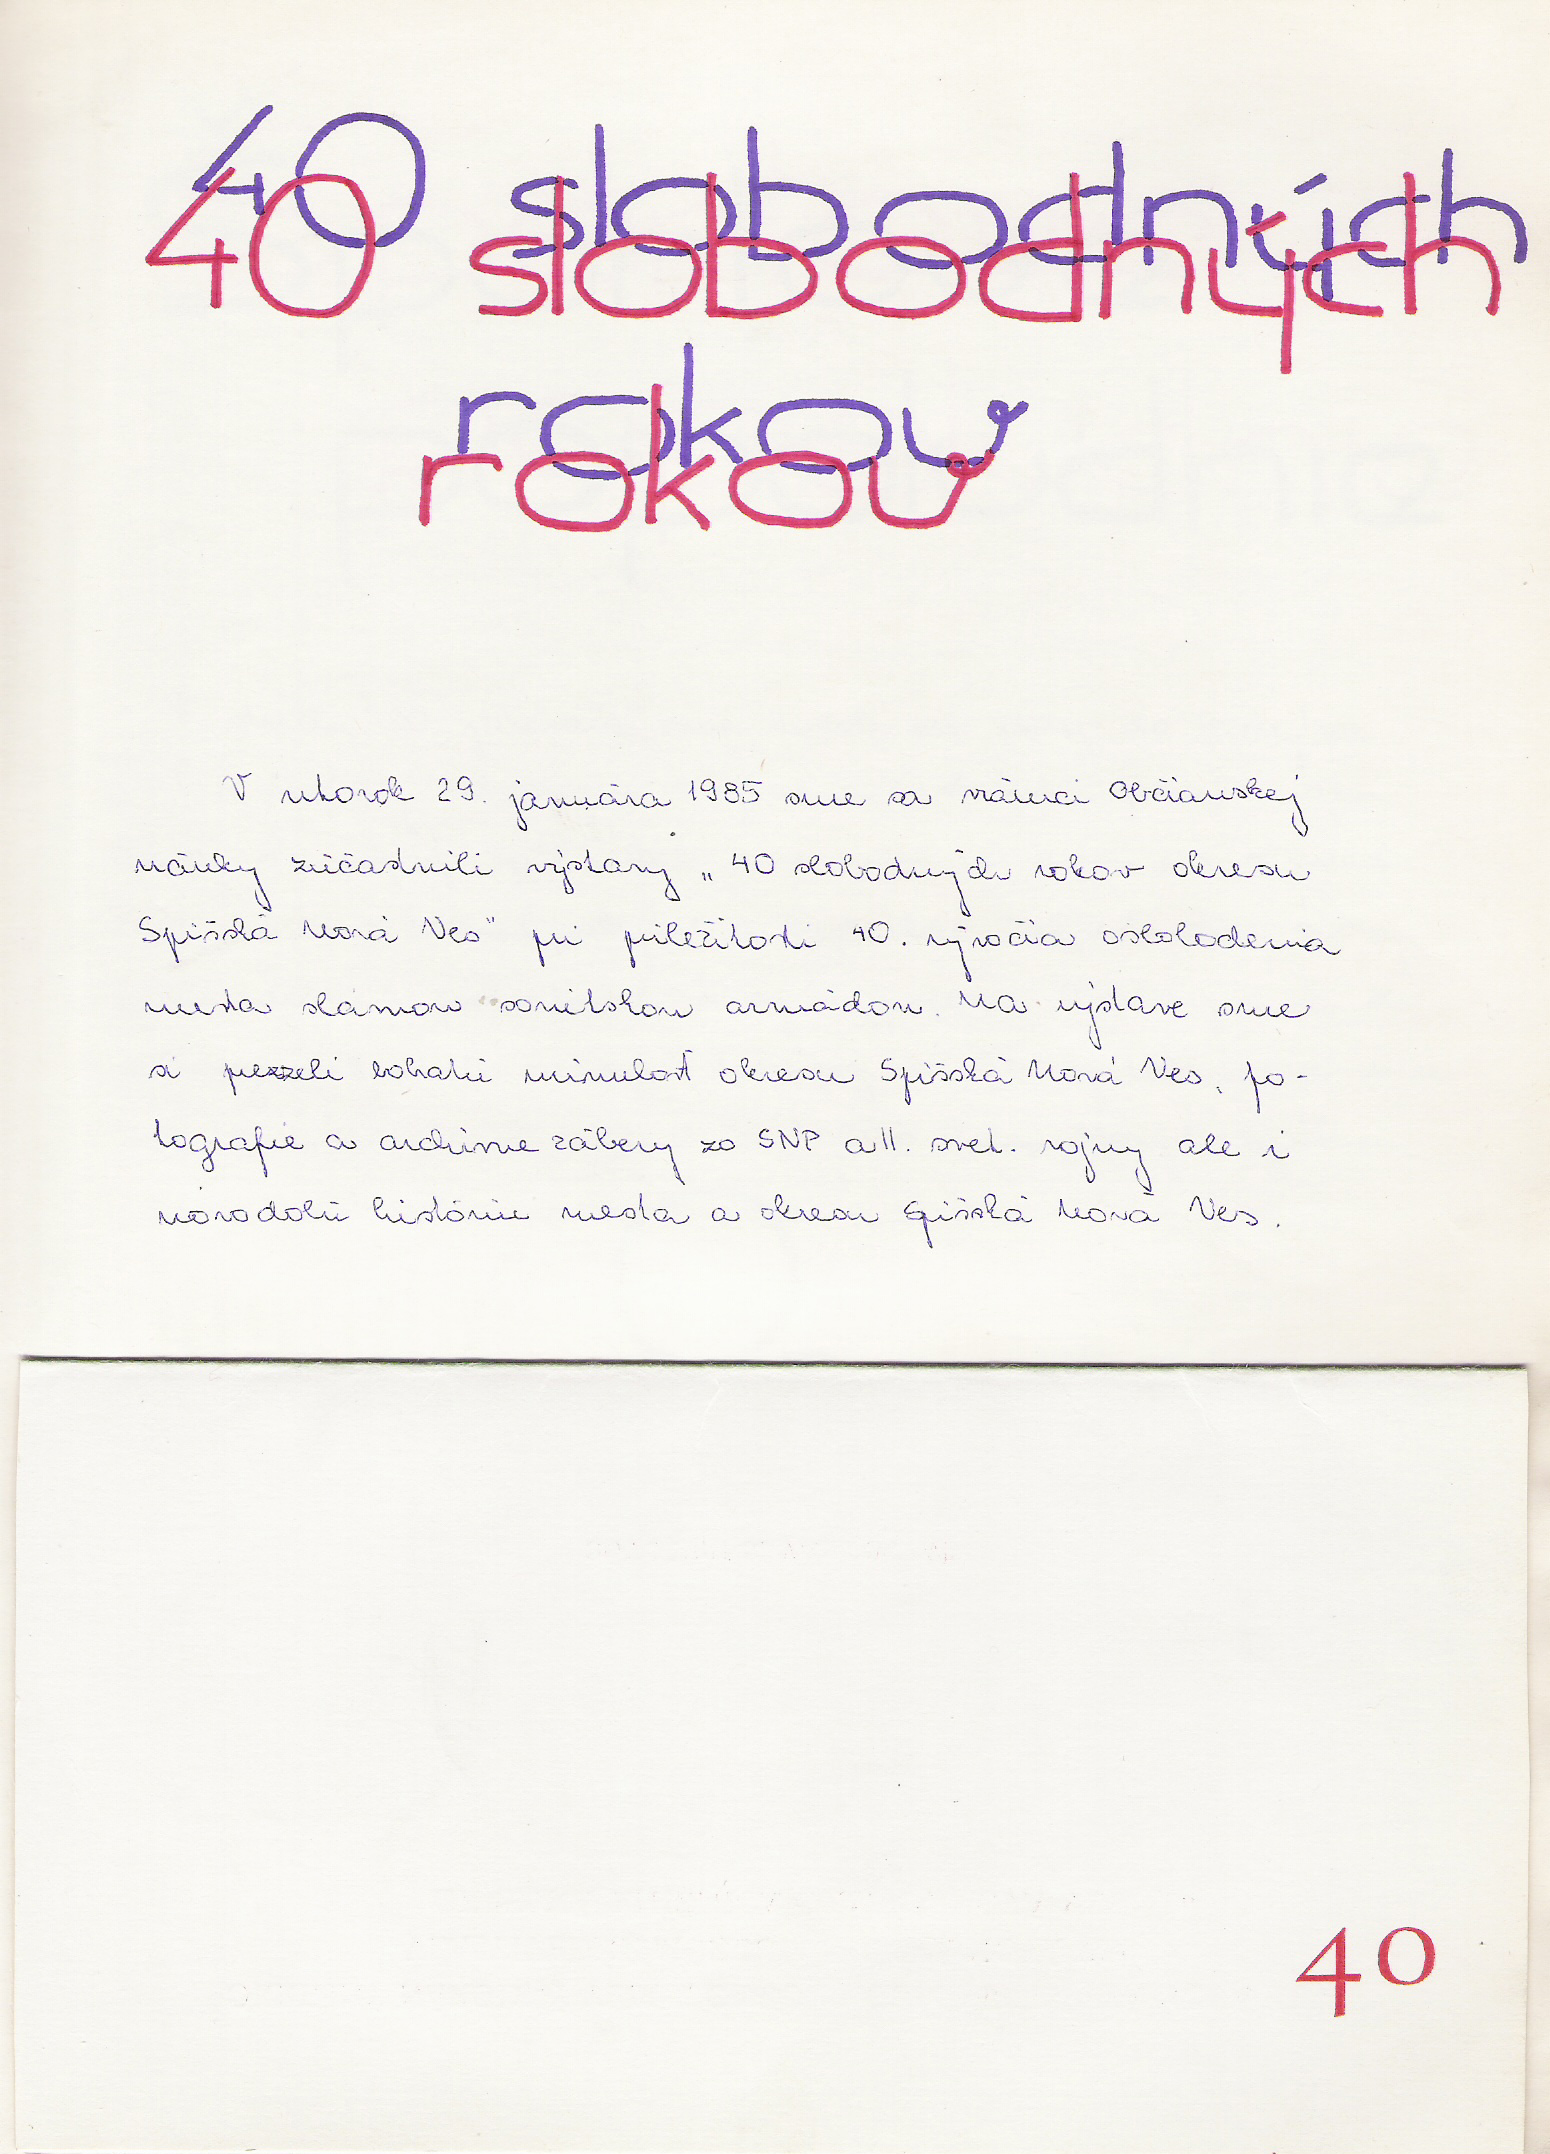 40 slobodných
rokov
V utorok 29. januára 1985 sme sa v rámci Občianskej
náuky zúčastnili výstavy „40 slobodných rokov okresu
Spišská Nová Ves" pri príležitosti 40. výročia oslobodenia
mesta slávnou sovietskou armádou. Na výstave sme
si prezreli bohatú minulosť okresu Spišská Nová Ves, fo-
tografie a archívne zábery zo SNP a II. svet. vojny ale i
národnú históriu mesta a okresu Spišská Nová Ves.
40